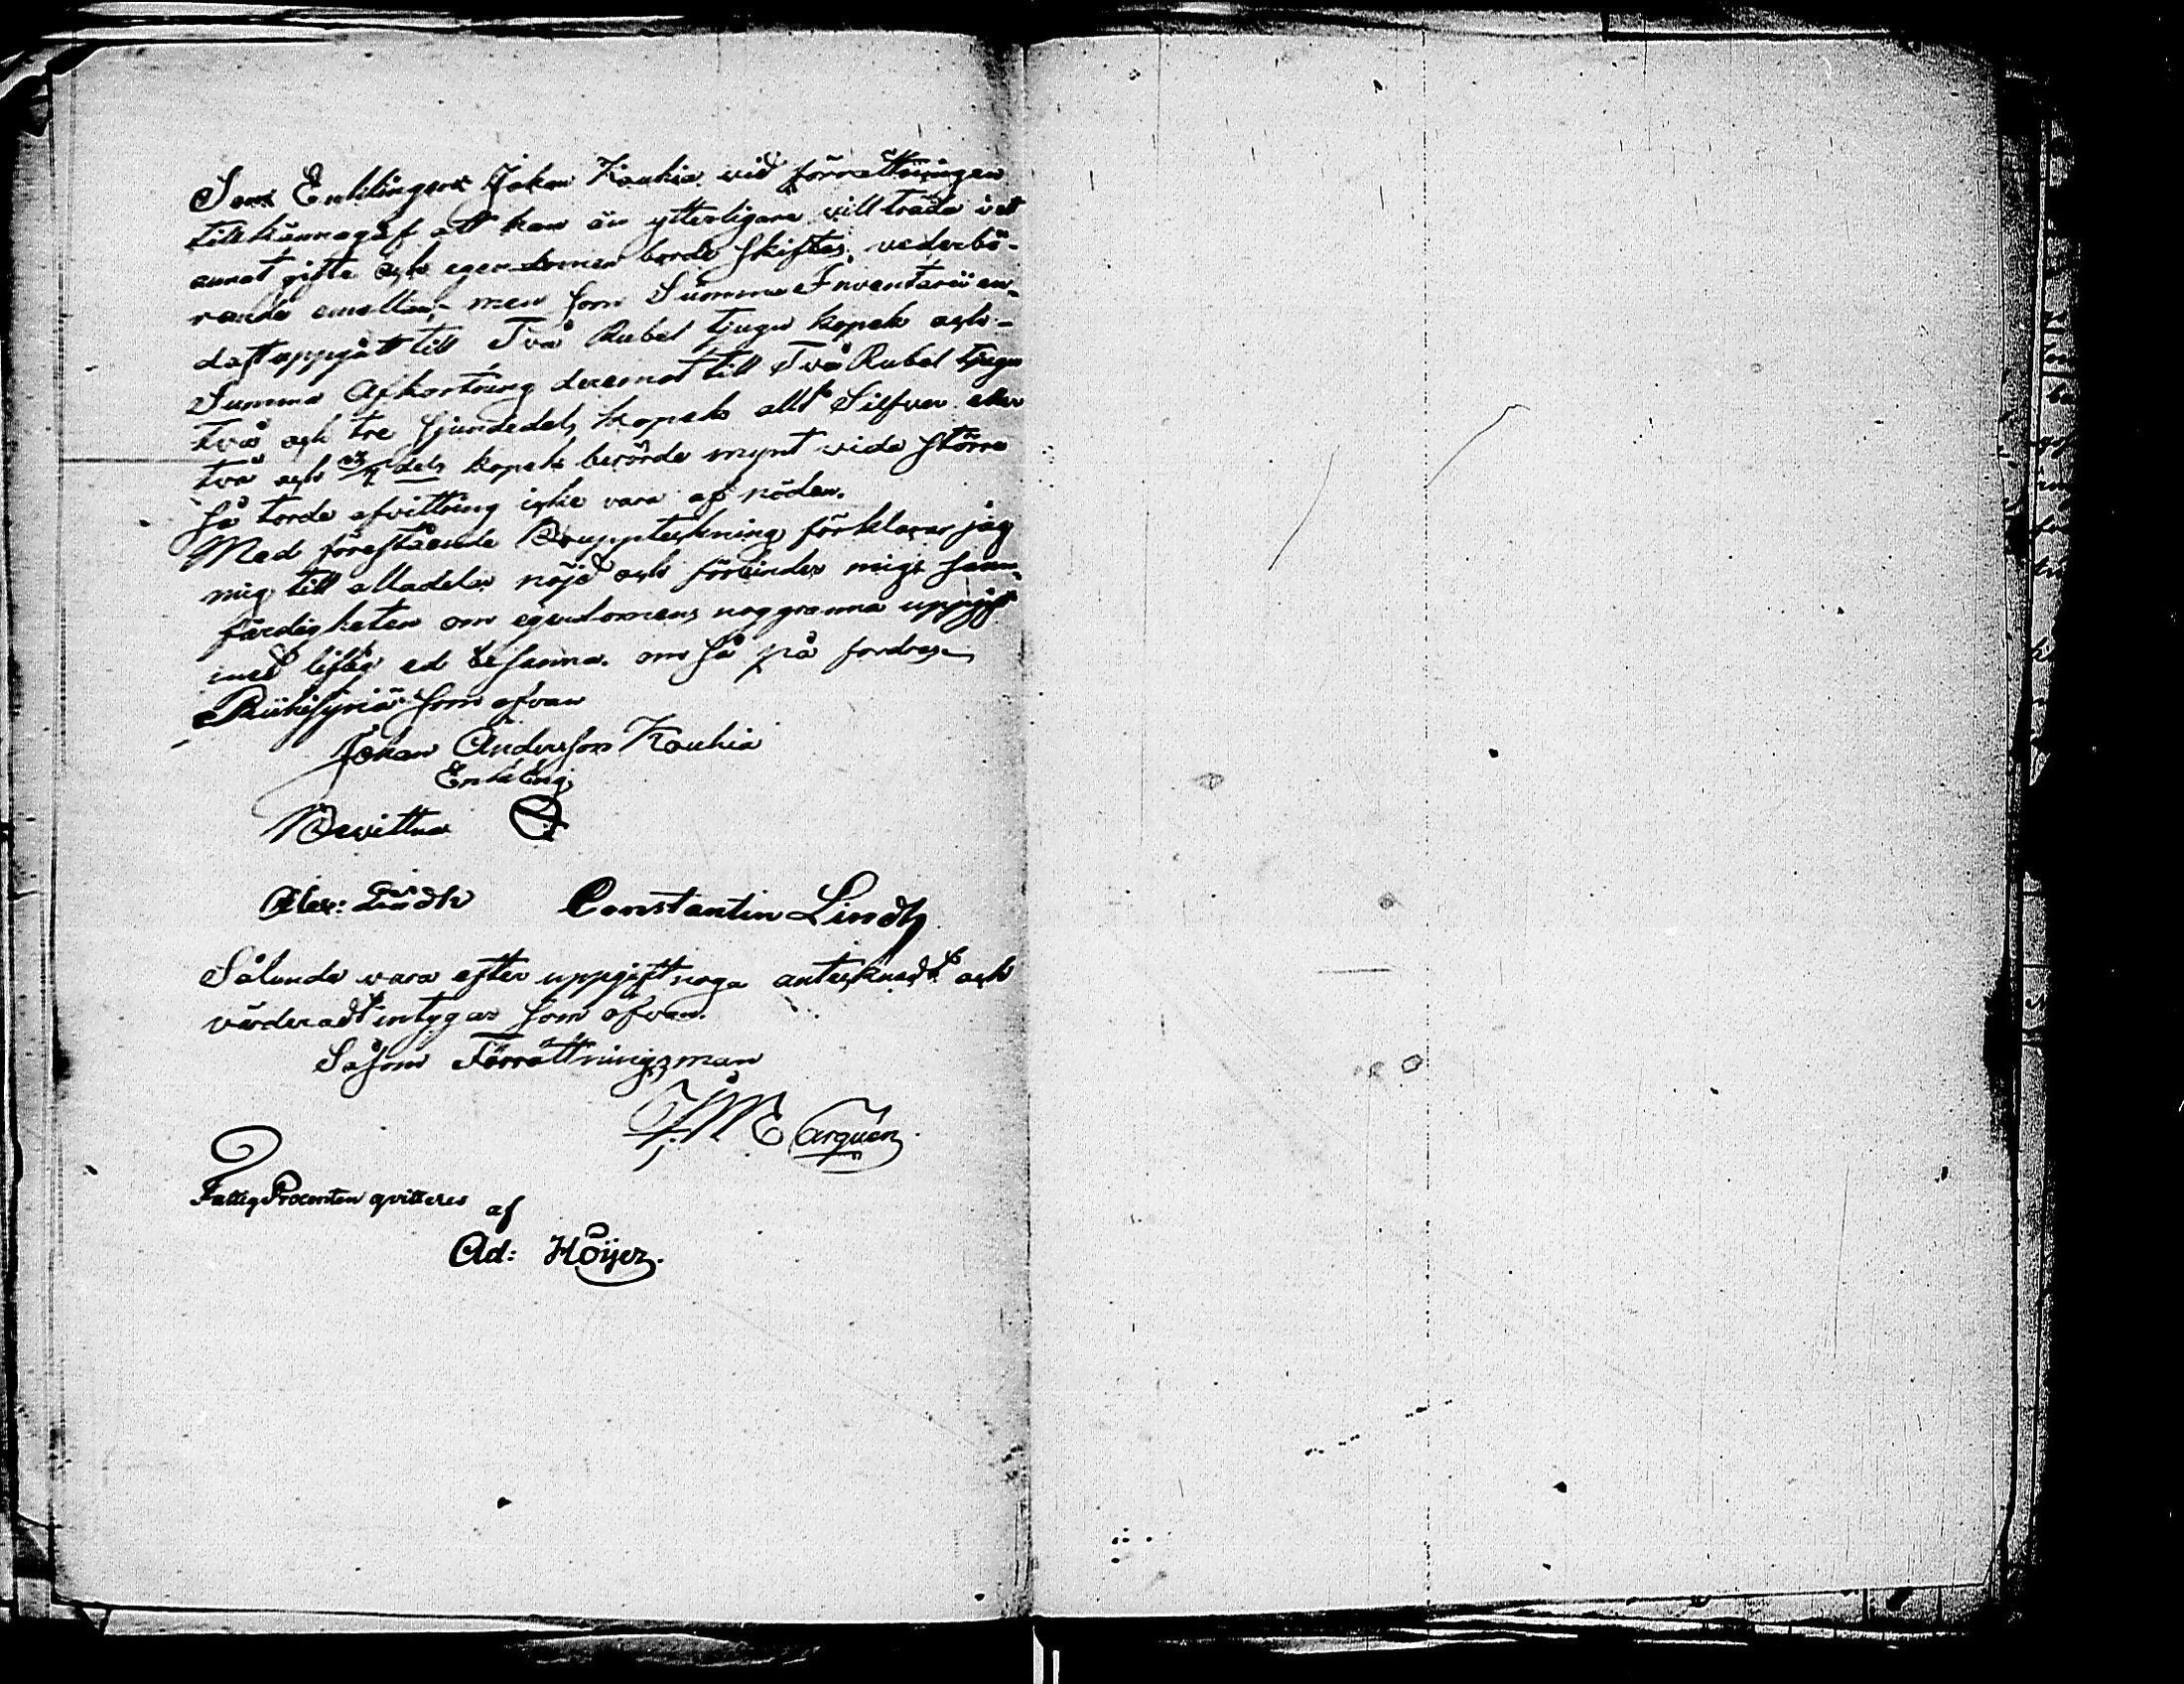 Som Enklingen Johan Kauhia vid förrättningen
tillkännagaf att han än ytterligare vill träda i ett
annat gifte och egendomen borde skiftas vederbö-
rande emellan,- men som Summa Inventarii en-
dast uppgått till Två Rubel tjugu kopek och-
Summa Afkortning deremot till Två Rubel tjugu
två och tre sjundedels kopek allt Silfver eller
två och 3/7 dels kopek berörde mynt vida större
så torde afvittring icke vara af nöden.
Med förestående Bouppteckning förklarar jag
mig till alladelar nöjd och förbinder mig sann-
färdigheten om egendomens noggranna uppgift
med liflig ed besanna. om så på fordras
som ofvan
Johan Andersson Kauhia
Enkling
Bevittna
Alex: Lindh Constantin Lindh
Sålunda vara efter uppgift noga antecknadt och
värderadt intygar som ofvan.
Såsom Förrättningsman
Fattig Procenten qvitteres af
Ad: Höijer.